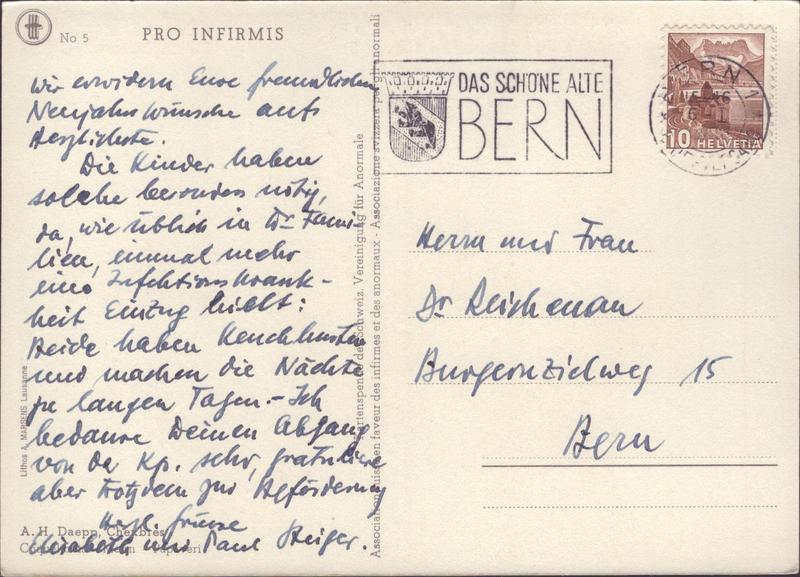 No 5
PRO INFIRMIS
wir erwidern Eure freundlichen
Neujahrswünsche aufs
Herzlichste.
Die Kinder haben
solche besonders nötig,
da, wie üblich in Dr. Fami-
lien, einmal mehr
eine Infektionskrank-
heit Einzug hielt:
Beide haben Keuchhusten
und machen die Nächte
zu langen Tagen. - Ich
bedaure Deinen Abgang
von der Kp. sehr, gratuliere
aber trotzdem zur Beförderung
Herzl. Grüsse
Elisabeth und Paul Steiger.
A. H. Daepp, Chexbres
Lithos A. MARSENS Lausanne
Kartenspende der Schweiz. Vereinigung für Anormale
Association suisse en faveur des infirmes et des anormaux - Associazione svizzera per gli anormali
DAS SCHÖNE ALTE
BERN
BERN
10 HELVETIA
Herrn und Frau
Dr Reichenau
Burgernzielweg 15
Bern